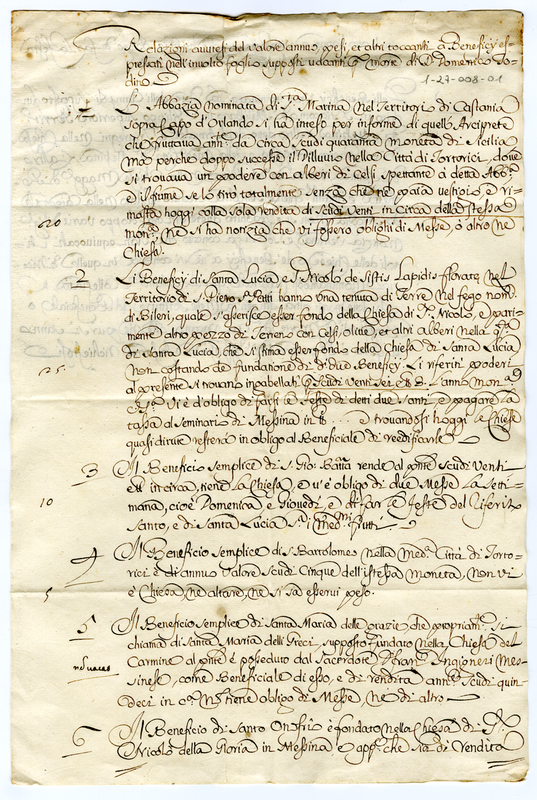 Relazioni del valore annuo, pesi, et altri toccanti a Beneficij es-
pressati nell'involto foglio supposti vacanti per morte di D. Domenico To-
dino
1-27-008-01
Abbazia nominata di S.ta Marina nel Territorio di Castania
sopra Capo d'Orlando si ha inteso per informe di quello Arciprete
che fruttava ann. da circa scudi quaranta moneta di Sicilia
ma perche doppo successe il Dilluvio nella Città di Tortorici, dove
si trovava un podere con alberi di Celsi spettante à detta Abb.
e il fiume se lo tirò totalmente senza che ne paia vestigio, è ri-
masta hoggi colla sola rendita di Scudi Venti in Circa della stessa
20
mon. ne si ha notizia che vi fossero oblighi di Messe, ò altro ne
Chiesa.
2
Li Beneficij di Santa Lucia, e S. Nicolò de Sistis Lapidis nel
Territorio di S. Piero S. Patti hanno una tenuta di Terre nel fego nom.
di Bileni, quale s'aserisce esser fondo della Chiesa di S. Nicolo, e pari-
mente altro pezzo di Terreno con Celsi, olive, et altri alberi nella
di Santa Lucia, che si stima esser fondo della Chiesa di Santa Lucia
non costando de fundatione di d. due Beneficij. Li riferiti poderi
25.
al presente si trovano ingabellati Scudi Venti Sei l'anno mon.a
Vi è d'obligo di farsi le feste di detti due Santi e pagare la
tassa al Seminario di Messina in e trovandosi hoggi le Chiese
quasi dirute resterà in obligo al Beneficiale di reedificarle
3
Il Beneficio semplice di S. Gio: Batta rende al pnte Scudi Venti
in circa, tiene la Chiesa, e v'è obligo di due Messe la Setti-
10
mana, cioè Domenica e Giovedì, e di far le Feste del riferito
Santo, e di Santa Lucia frutti
4
Il Beneficio semplice di S. Bartolomeo nella Med. Città di Torto-
rici è di annuo valore Scudi Cinque dell'istessa moneta, non vi
5
è Chiesa, ne altare, ne si sa esservi peso.
5
Il Beneficio semplice di Santa Maria delle grazie che propriam. si
chiama di Santa Maria delli Greci, supposto fundato nella Chiesa del
Carmine al pnte è posseduto dal Sacerdote D. Fran. Angioneri Mes-
sinese, come Beneficiale di esso, e di rendita ann. Scudi quin-
deci in c.a Non tiene obligo di Messe, ne di altro
6
Il Beneficio di Santo Onofrio è fondato nella Chiesa di S.
Nicolò della Floria in Messina, e app. che sia di rendita